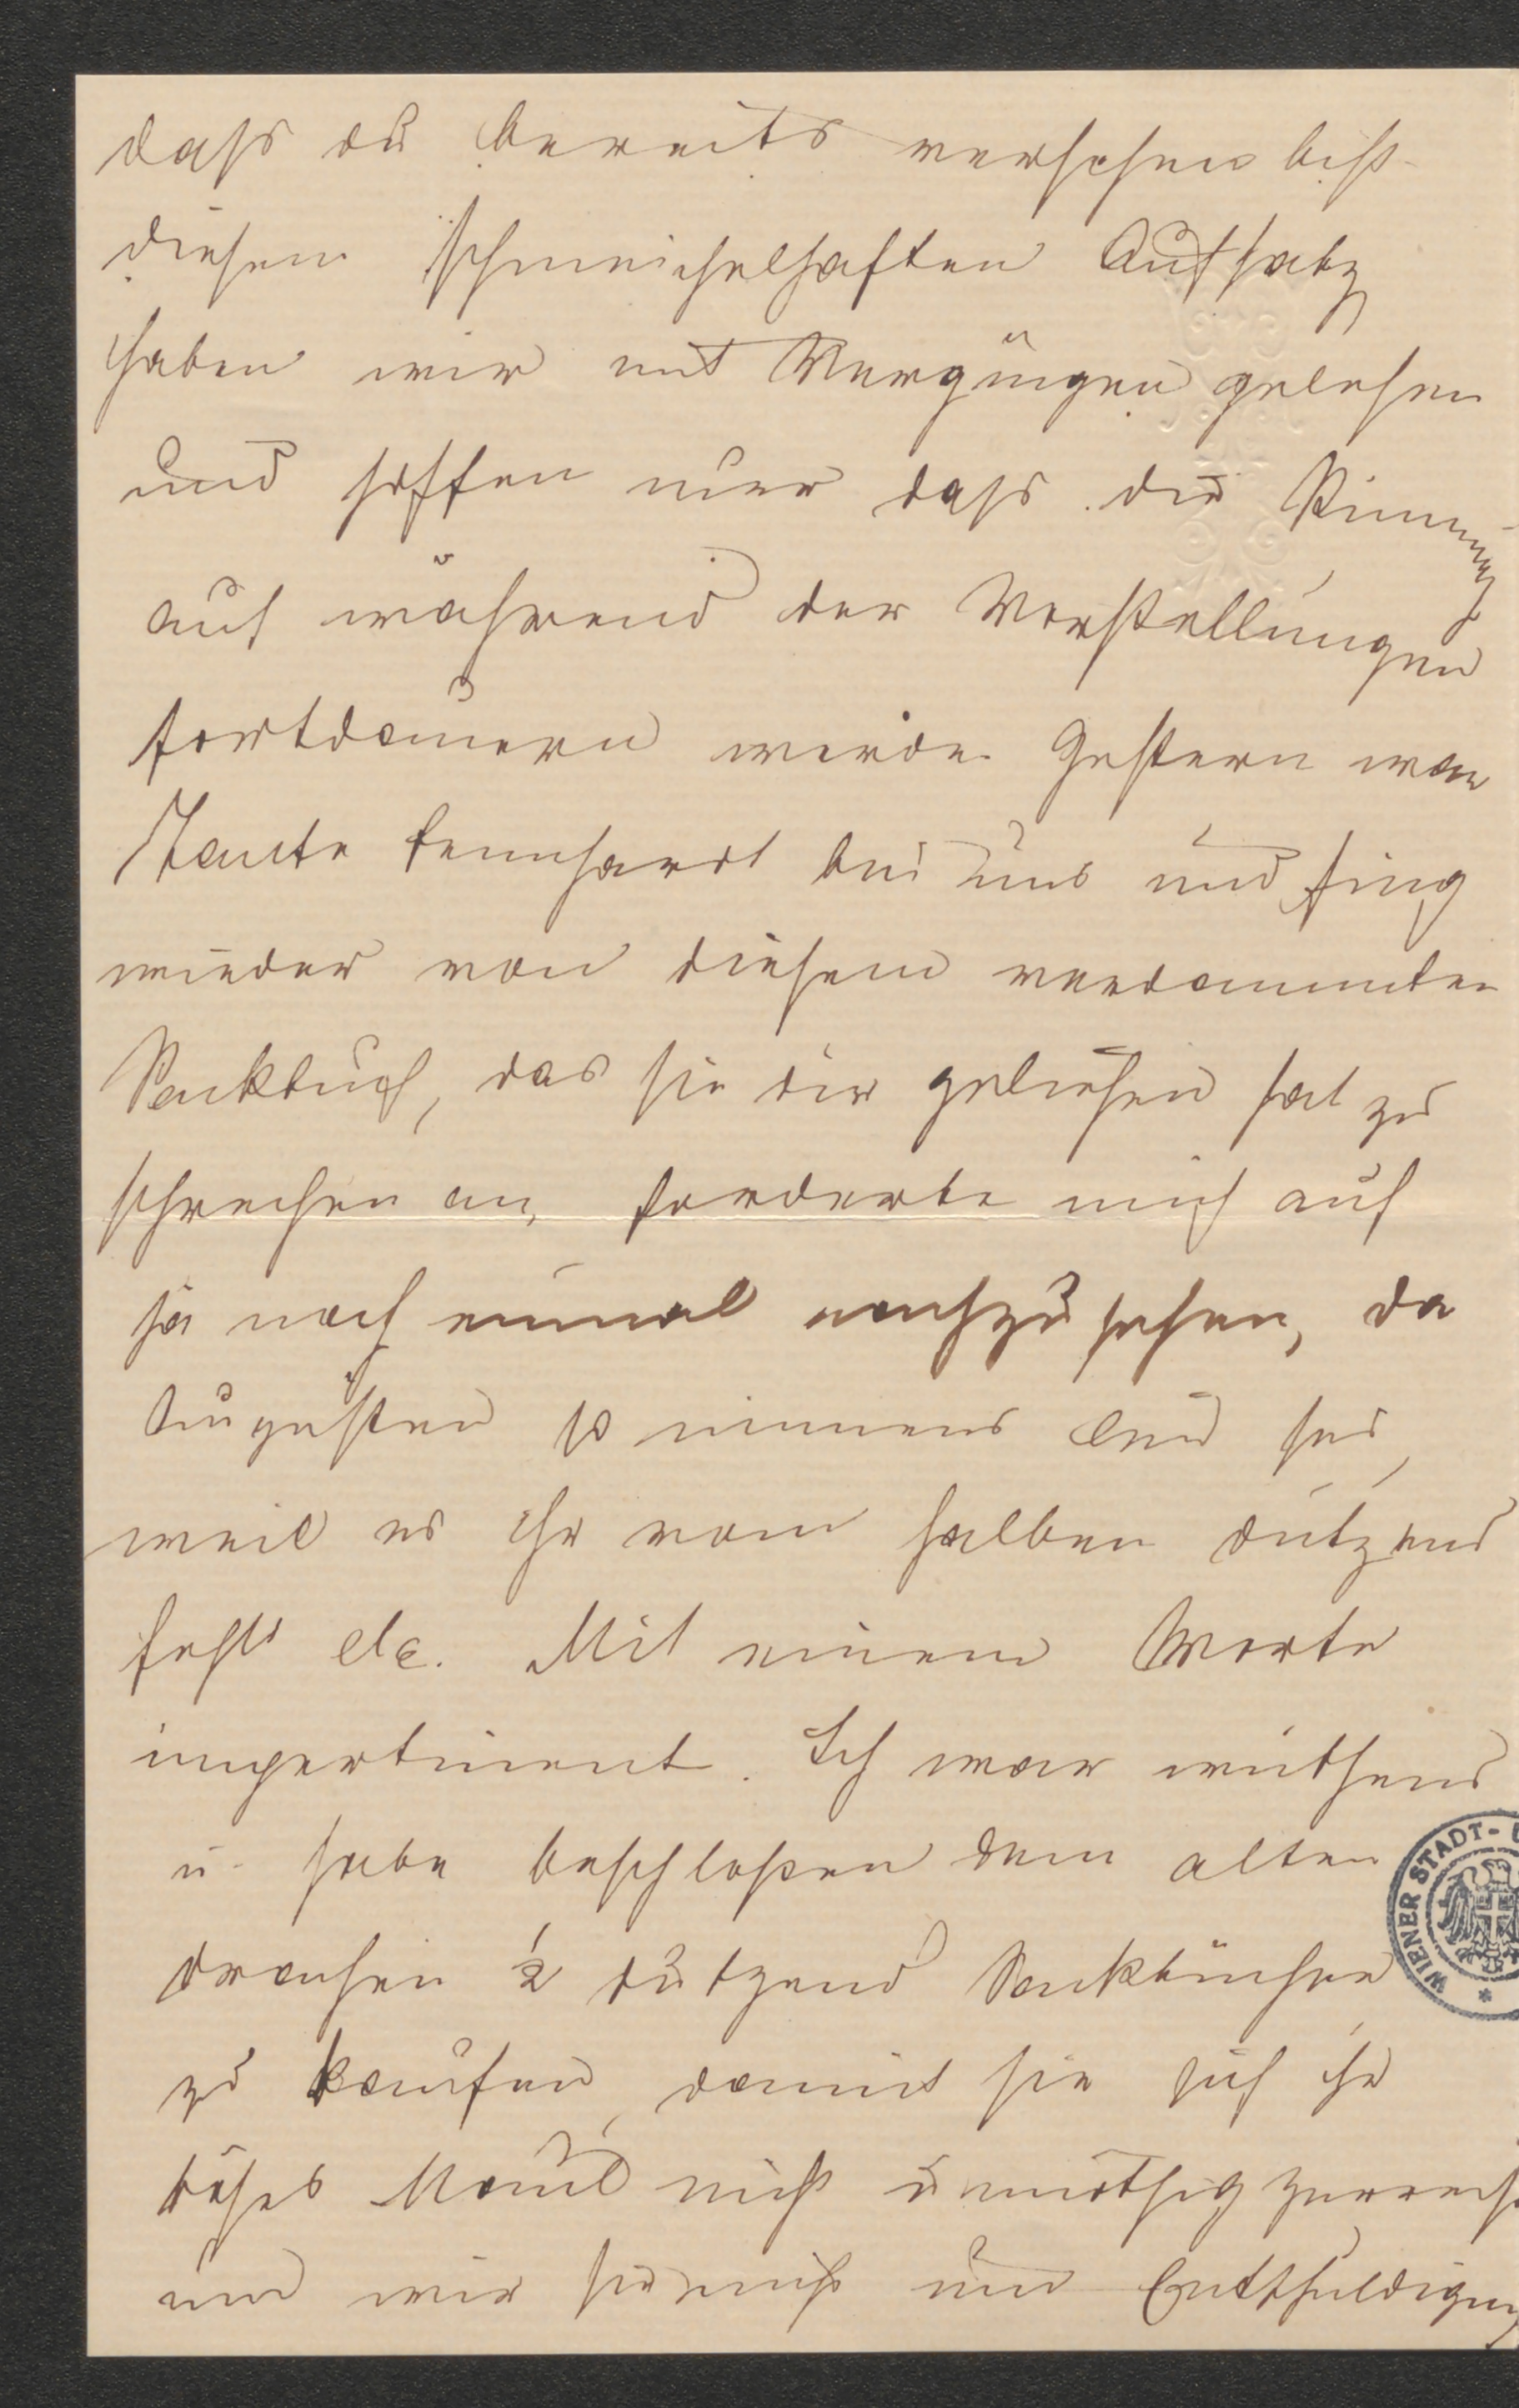 dass du bereits versehen bist
diesen schmeichelhaften Aufsatz
haben wir mit Vergnügen gelesen
und hoffen nur dass die Stimmung
auch während der Vorstellungen
fortdauern werde. Gestern war
Tante Lennhardt bei uns und fing
wieder von diesem verdammten
Sacktuch, das sie dir geliehen hat zu
sprechen an, forderte mich auf
ja noch einmal nachzusehen, da
Augusten so immens leid sei,
weil es ihr vom halben dutzend
fehlt etc. Mit einem Worte
impertinent. Ich war wüthend
u. habe beschloßen dem alten
drachen ½ dutzend Sacktücher
zu kaufen, damit sie sich ihr
böses Maul nicht unnöthig zerreißt
und wir sie nicht um Entschuldigung
WIENER STADT-